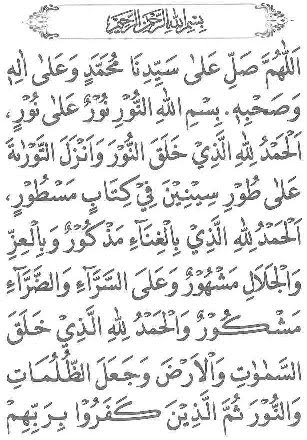 بِسْمِ اللهِ الرَّحْمٰنِ الرَّحِيْمِ
اَللّٰهُمَّ صَلِّ عَلٰى سَيِّدِنَا مُحَمَّدٍ وَعَلٰى اٰلِهٖ
وَصَحْبِهٖ. بِسْمِ اللهِ النُّوْرِ نُوْرٌ عَلٰى نُوْرٍ،
اَلْحَمْدُ لِلّٰهِ الَّذِيْ خَلَقَ النُّوْرَ وَاَنْزَلَ التَّوْرٰىةَ
عَلٰى طُوْرِ سِيْنِيْنَ فِيْ كِتَابٍ مَسْطُوْرٍ،
اَلْحَمْدُ لِلّٰهِ الَّذِيْ بِالْغِنَآءِ مَذْكُوْرٌ وَبِالْعِزِّ
وَالْجَلَالِ مَشْهُوْرٌ وَعَلَى السَّرَّآءِ وَالضَّرَّآءِ
مَشْكُوْرٌ وَالْحَمْدُ لِلّٰهِ الَّذِيْ خَلَقَ
السَّمٰوٰتِ وَالْاَرْضَ وَجَعَلَ الظُّلُمَاتِ
وَالنُّوْرَ ثُمَّ الَّذِيْنَ كَفَرُوْا بِرَبِّهِمْ